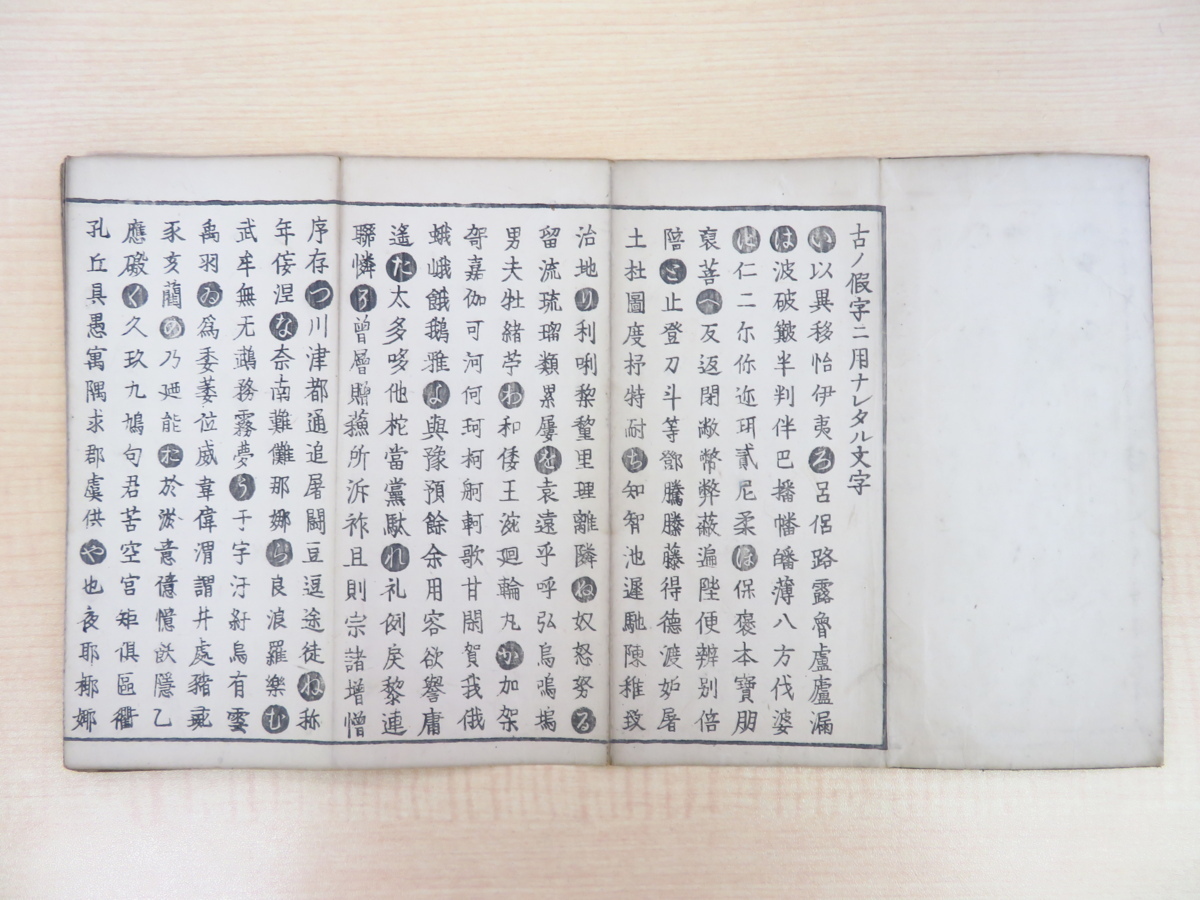 古ノ假字ニ用ナレタル文字
い以異移怡伊夷ろ呂侶路露魯盧廬漏
は波破簸半判伴巴播幡皤薄八方伐婆
に仁二尓你迩珥貳尼柔ほ保褒本寶朋
裒菩へ反返閇敝幣弊蔽遍陛便辨別倍
陪と止登刀斗等鄧騰滕藤得德渡妬屠
土杜圖度抒特耐ち知智池遲馳陳稚致
治地り利唎黎釐里理離隣ぬ奴怒努る
留流琉瑠類累屢を袁遠乎呼弘烏嗚塢
男夫牡緒苧わ和倭王涴廻輪丸か加架
哿嘉伽可河何珂柯舸軻歌甘閤賀我俄
蛾峨餓鵝雅よ與豫預餘余用容欲譽庸
遙た太多哆他柁當黨馱れ礼例戻黎連
聯憐そ曾層贈蘓所泝祚且則宗諸增憎
序存つ川津都通追屠鬪豆逗途徒ね祢
年侫涅な奈南難儺那娜ら良浪羅樂む
武牟無无鵡務霧夢う于宇汙紆烏有雲
禹羽ゐ爲委萎位威韋偉渭謂井處豬
豕亥藺の乃廼能お於淤意億憶飫隱乙
應礮く久玖九鳩句君苦空宮矩俱區衢
孔丘具愚寓隅求郡虞供や也夜耶椰娜